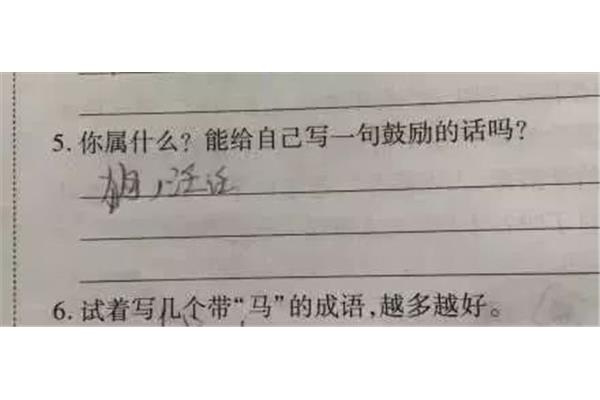 5. 你属什么？能给自己写一句鼓励的话吗？
6. 试着写几个带“马”的成语，越多越好。